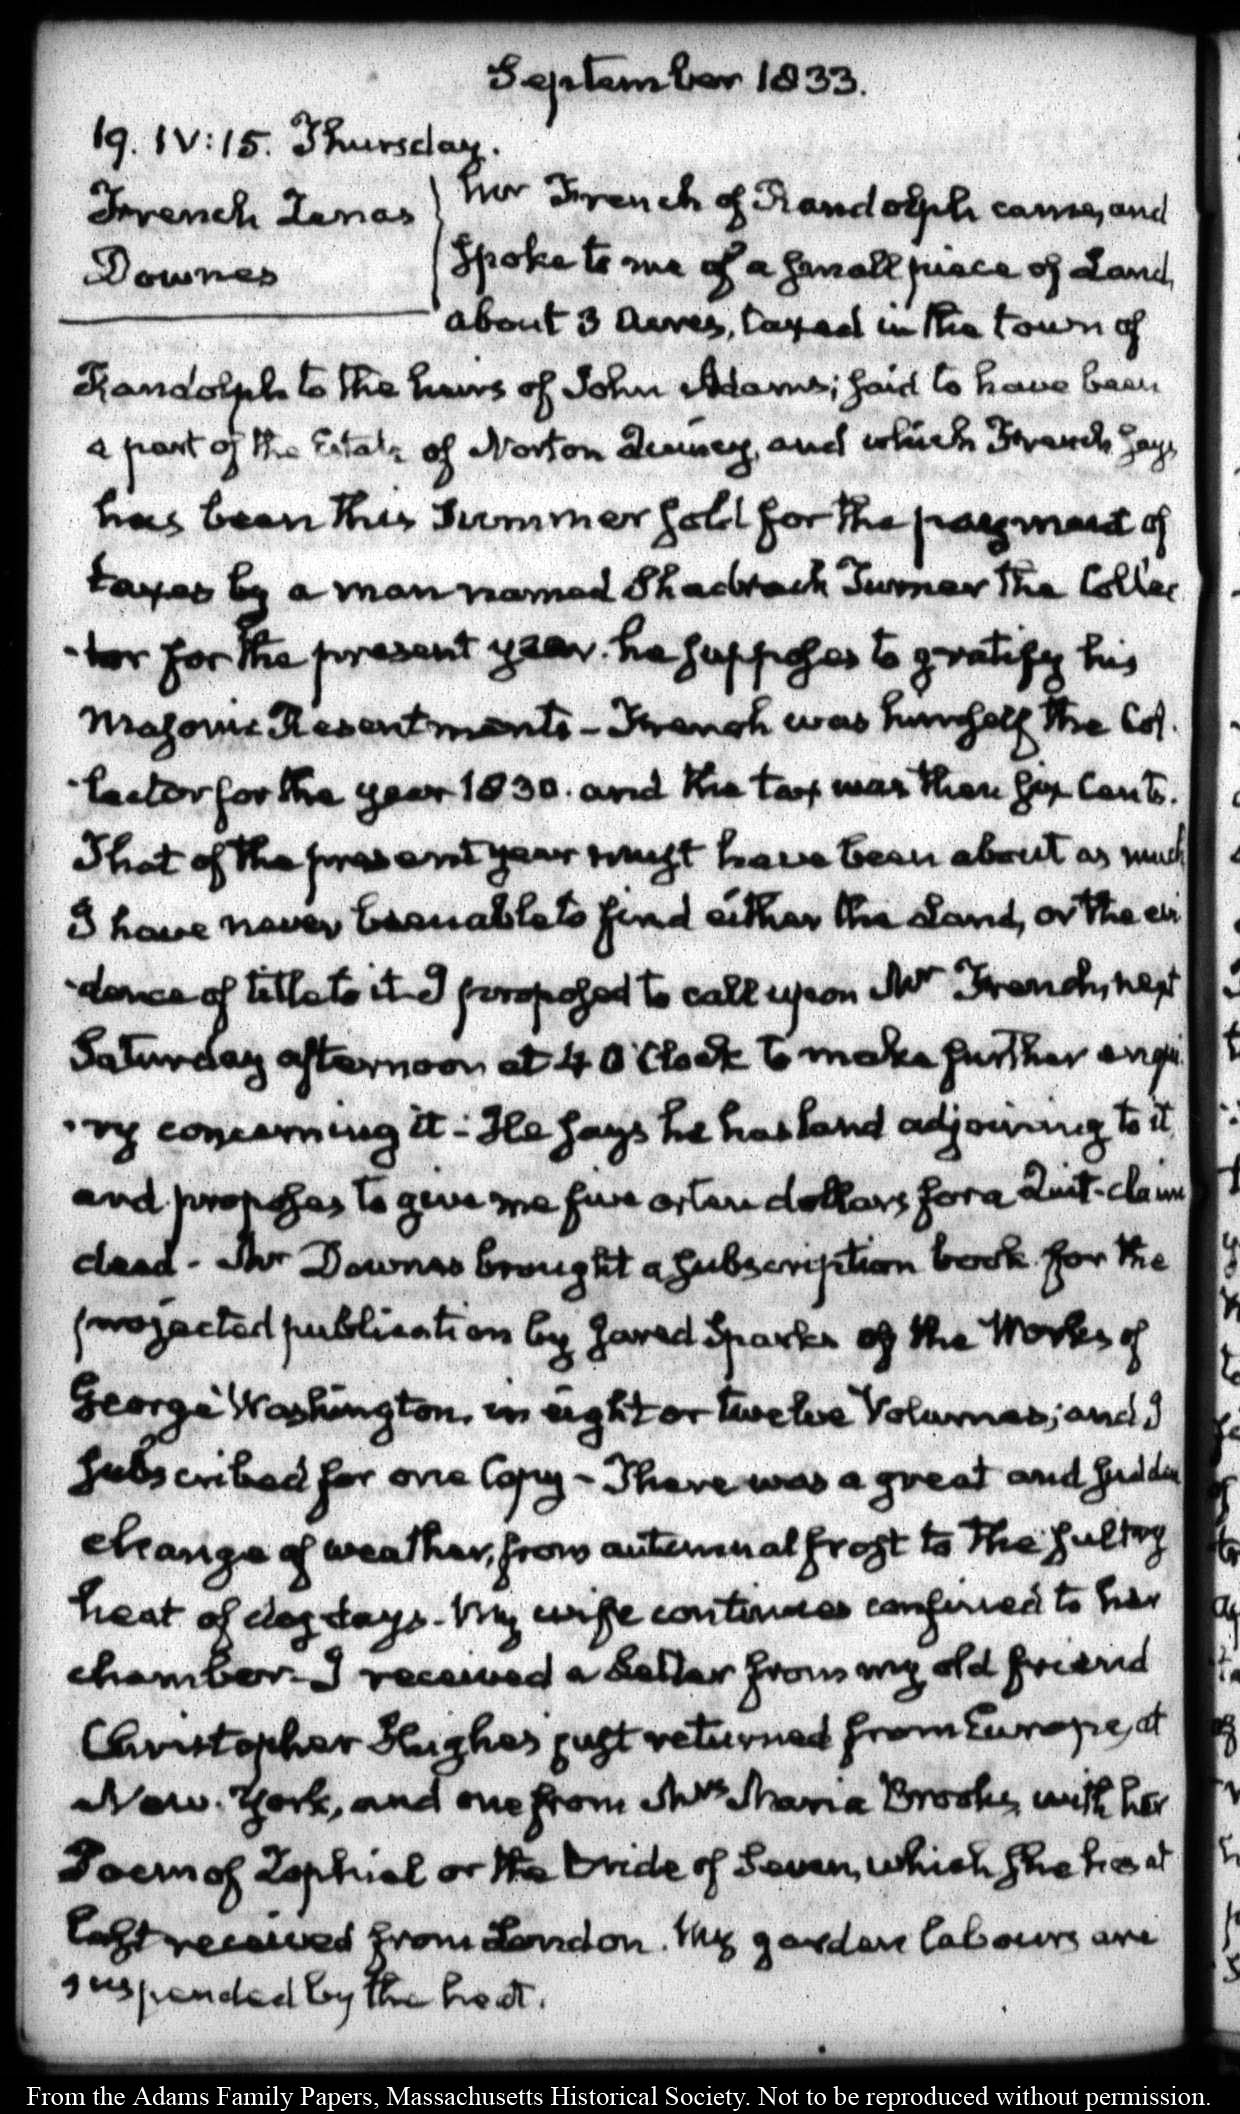 September 1833.
19. IV:15. Thursday.
French Zenas
Downes
Mr French of Randolph came, and
spoke to me of a small piece of Land,
about 3 Acres, taxed in the town of
Randolph to the heirs of John Adams; said to have been
a part of the Estate of Norton Quincy, and which French says
has been this Summer sold for the payment of
taxes by a man named Shadrach Turner the Collec
-tor for the present year. he supposes to gratify his
Masonic Resentments - French was himself the Col.
-lector for the year 1830. and the tax was then six Cents.
That of the present year must have been about as much
I have never been able to find either the Land, or the evi
-dence of title to it - I proposed to call upon Mr French, next
Saturday afternoon at 4 O'Clock to make further enqui
-ry concerning it - He says he has land adjoining to it,
and proposes to give me five or ten dollars for a Quit-claim
deed - Mr Downes brought a subscription book for the
projected publication by Jared Sparks of the Works of
George Washington, in eight or twelve Volumes; and I
subscribed for one Copy - There was a great and sudden
change of weather, from autumnal frost to the sultry
heat of dog-days - My wife continues confined to her
chamber - I received a Letter from my old friend
Christopher Hughes just returned from Europe, at
New-York, and one from Mrs Maria Brooks, with her
Poem of Zophiel or the Bride of Seven, which she has at
last received from London. My garden labours are
suspended by the heat.
From the Adams Family Papers, Massachusetts Historical Society. Not to be reproduced without permission.